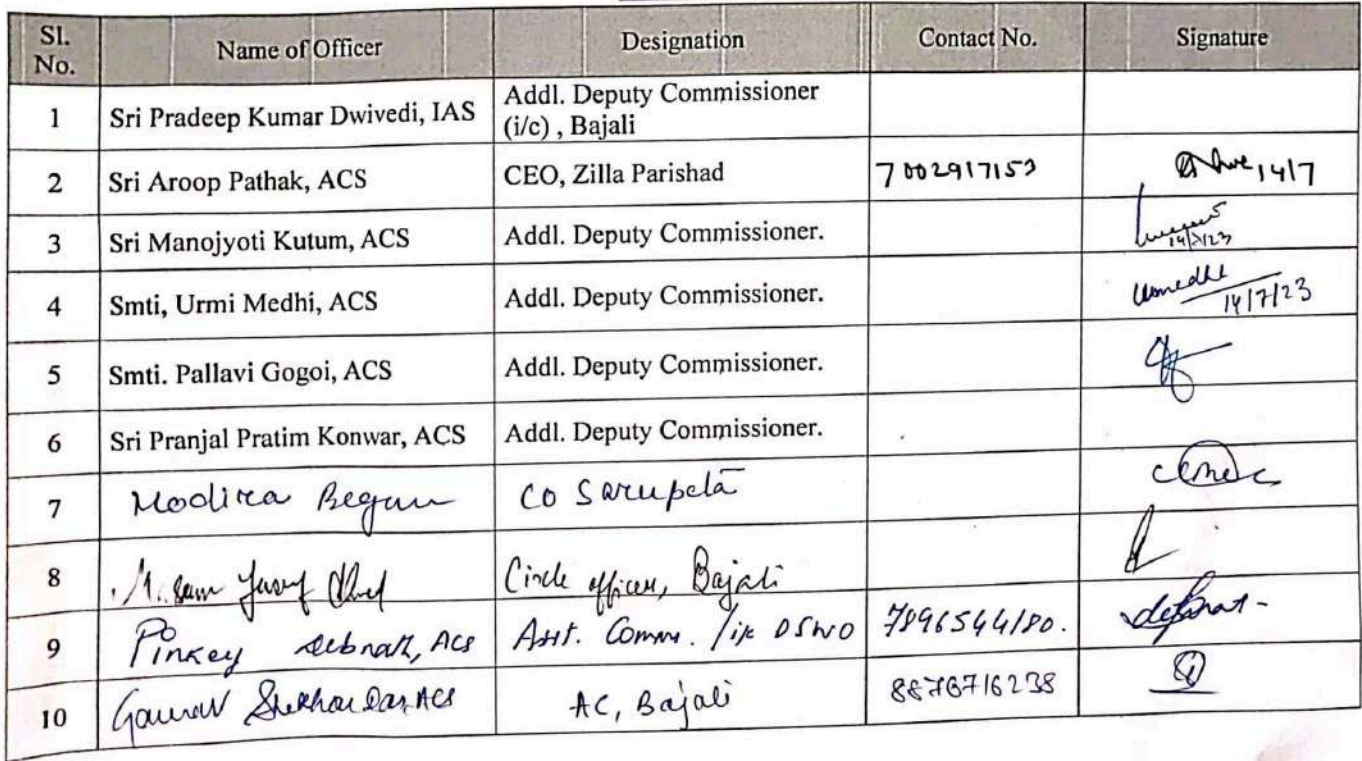 Sl. No. Name of Officer Designation Contact No. Signature
1 Sri Pradeep Kumar Dwivedi, IAS Addl. Deputy Commissioner (i/c) , Bajali
2 Sri Aroop Pathak, ACS CEO, Zilla Parishad 7002917153 14/7
3 Sri Manojyoti Kutum, ACS Addl. Deputy Commissioner. 14/7/23
4 Smti, Urmi Medhi, ACS Addl. Deputy Commissioner. Umedhi 14/7/23
5 Smti. Pallavi Gogoi, ACS Addl. Deputy Commissioner.
6 Sri Pranjal Pratim Konwar, ACS Addl. Deputy Commissioner.
7 Modira Begum CO Sarupeta
8 Circle officer, Bajali
9 Pinkey Debnath, ACS Asst. Comm. /i/c DSWO 7896544180.
10 Gaurav Shekhar Das, ACS AC, Bajali 8876716238